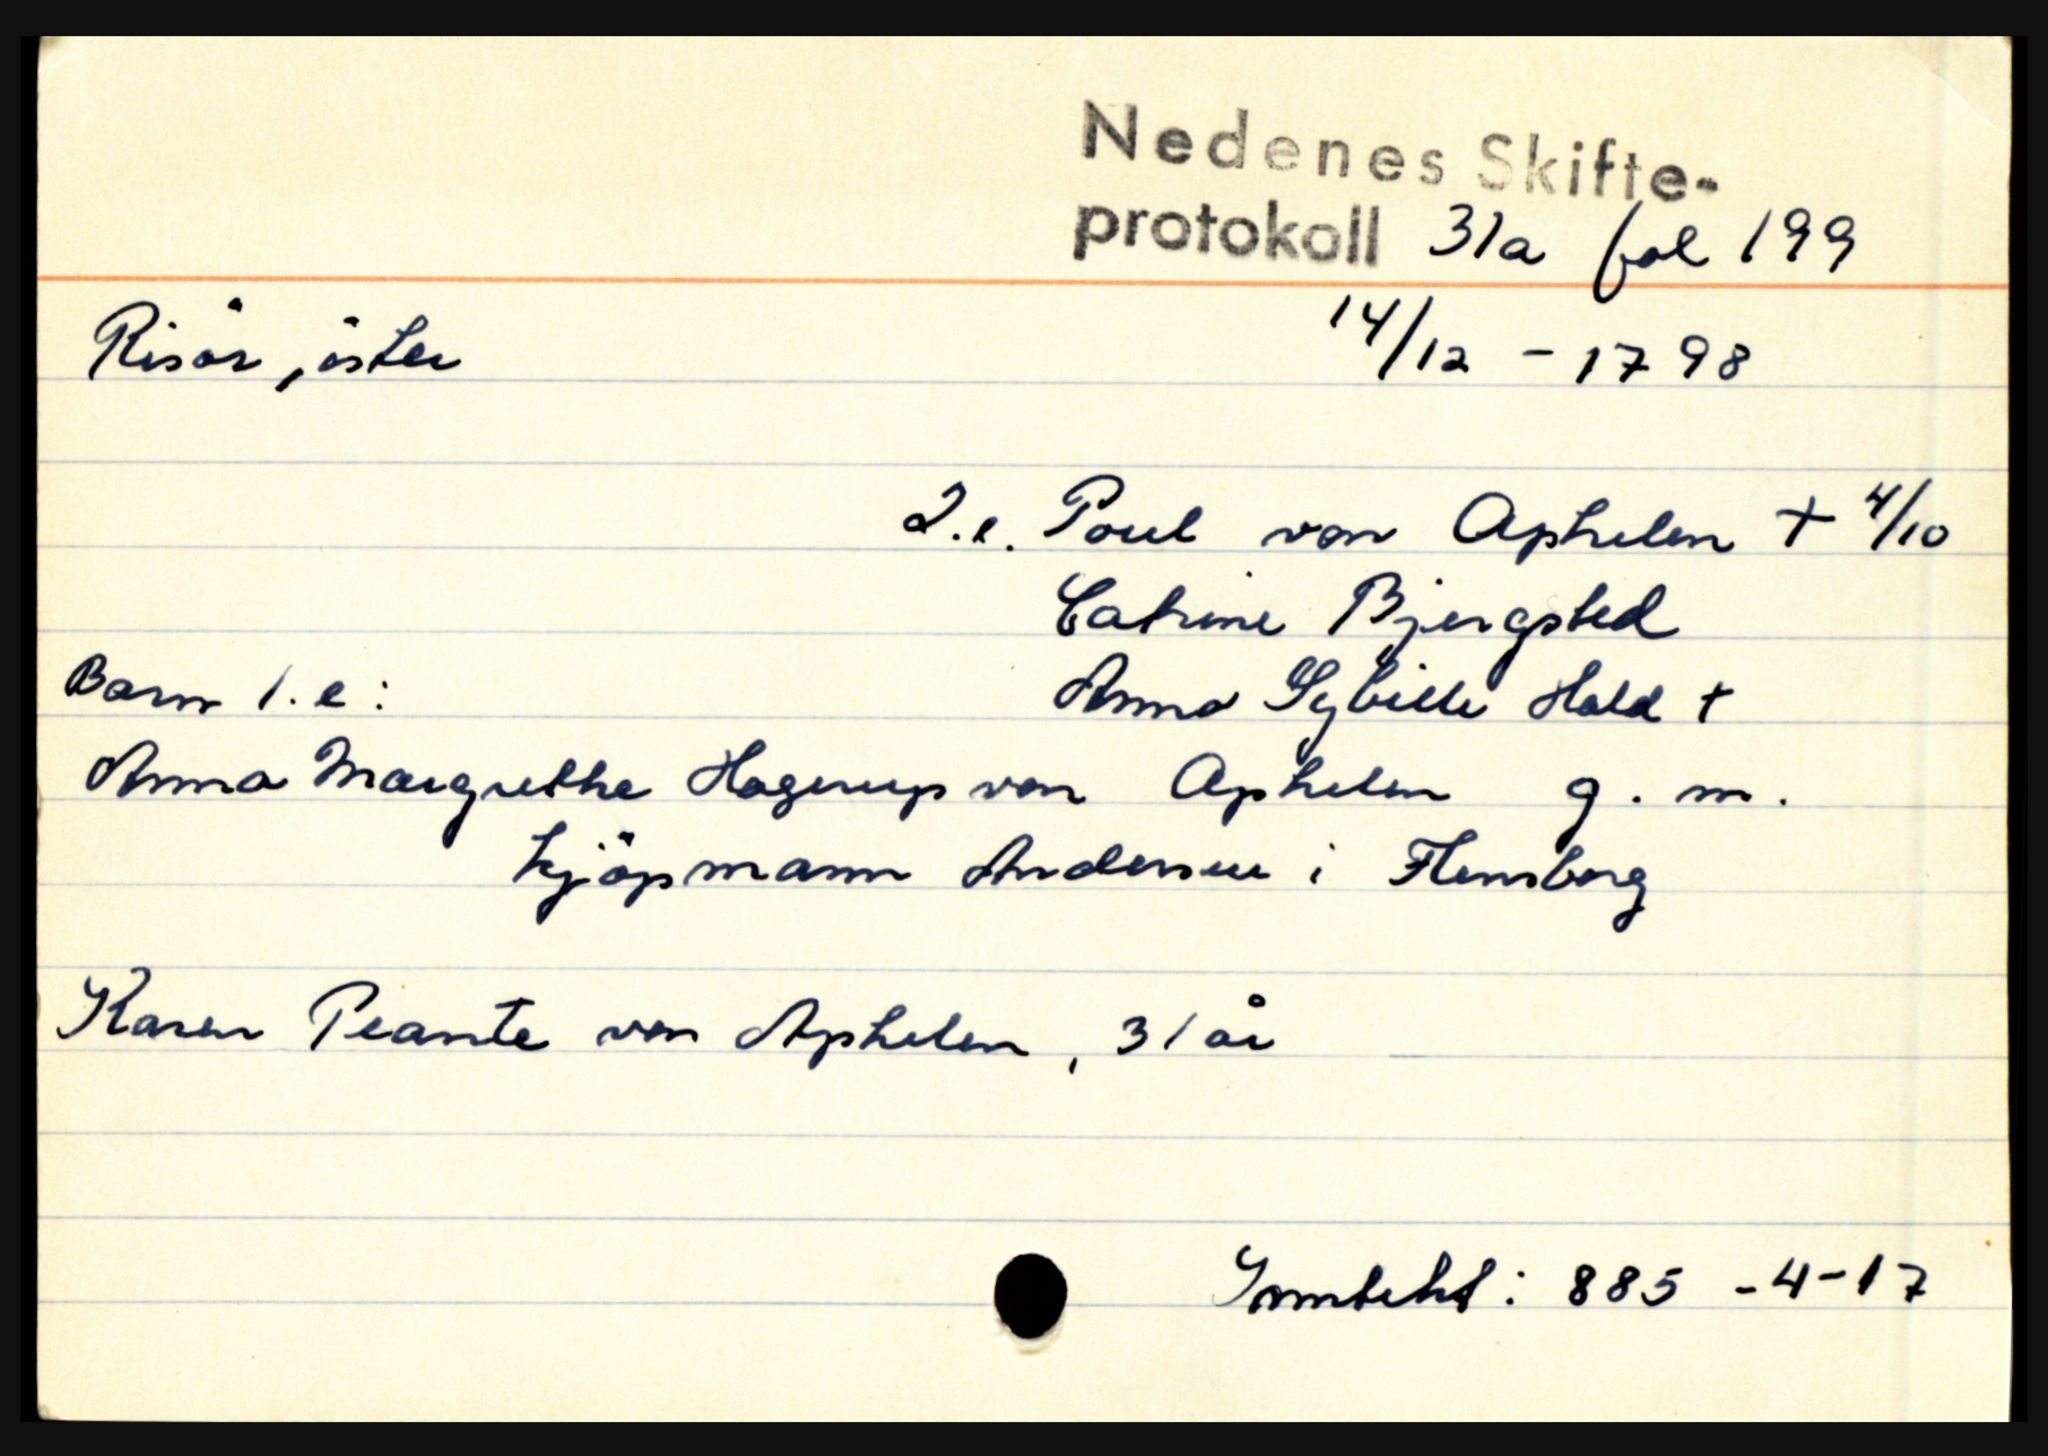 Nedenes Skifte-
protokoll 31a fol 199
Risör, öster 14/12 - 1798
2.e. Poul von Aphelen + 4/10
Catrine Bjergsted
Barn 1.e: Anna Sybille Hald +
Anna Margrethe Hagerup von Aphelen g. m.
kjöpmann Andersen i Flensborg
Karen von Aphelen, 31 år
Inntekt: 885 - 4 - 17